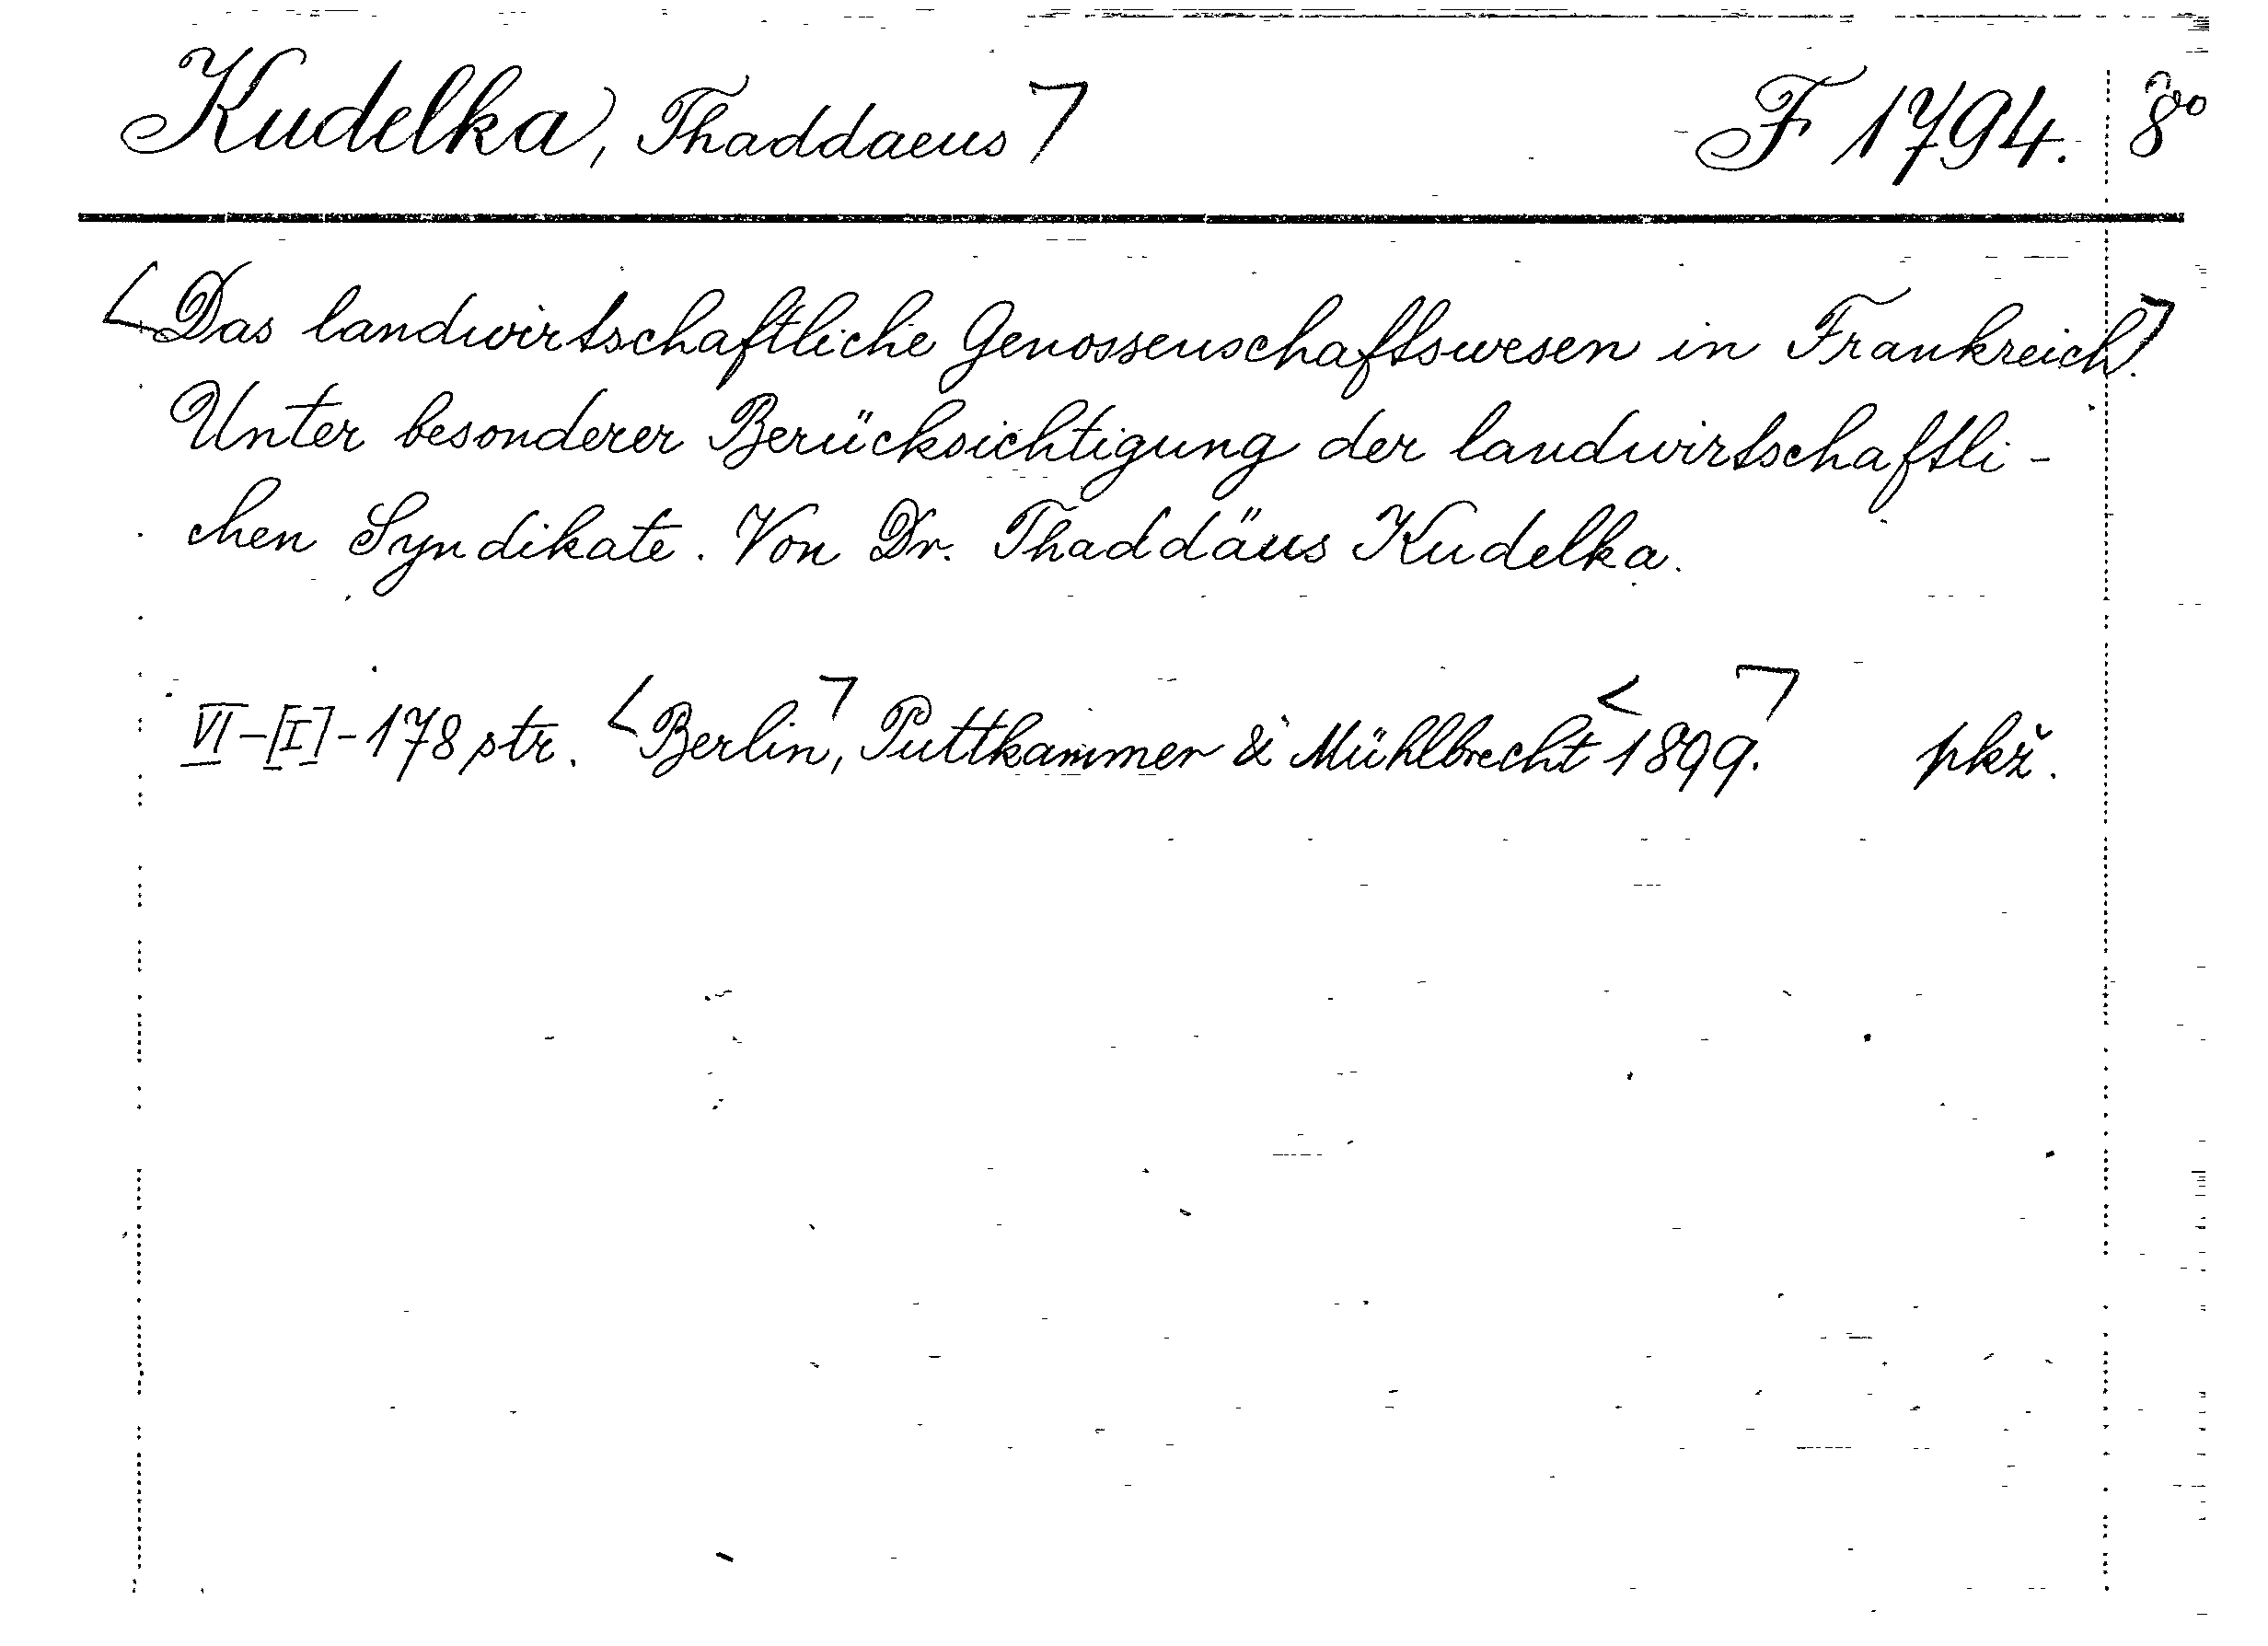 Kudelka, Thaddaeus F 1794. 8°
Das landwirtschaftliche Genossenschaftswesen in Frankreich.
Unter besonderer Berücksichtigung der landwirtschaftli-
chen Syndikate. Von Dr. Thaddäus Kudelka.
VI-[I]-178 str. Berlin, Puttkammer & Mühlbrecht 1899. pkž.